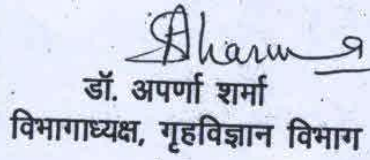 Sharma
डॉ. अपर्णा शर्मा
विभागाध्यक्ष, गृहविज्ञान विभाग